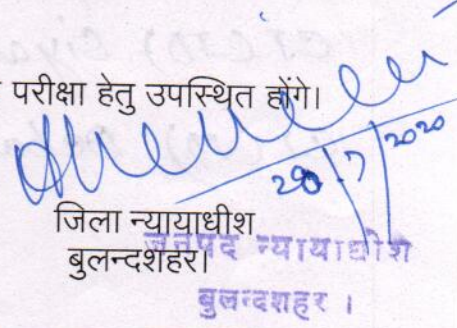 परीक्षा हेतु उपस्थित होंगे।
28/7/2020
जिला न्यायाधीश
बुलन्दशहर।
जनपद न्यायाधीश
बुलन्दशहर ।